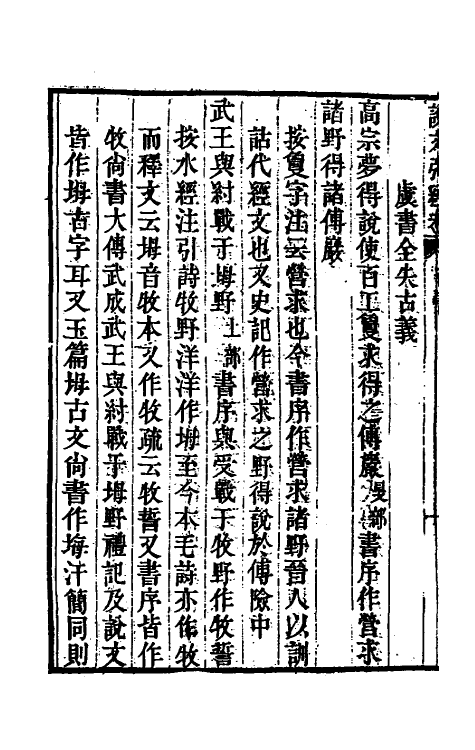 虞書全失古義
高宗夢得說使百工敻求得之傅巖𥄎部書序作營求
諸野得諸傅巖
按敻字注云營求也今書序作營求諸野晉人以訓
詁代經文也又史記作營求之野得說於傅險中
武王與紂戰于坶野土部書序與受戰于牧野作牧誓
按水經注引詩牧野洋洋作坶至今本毛詩亦作牧
而釋文云坶音牧本又作牧疏云牧誓又書序皆作
牧尙書大傳武成武王與紂戰于坶野禮記及說文
皆作坶古字耳又玉篇坶古文尙書作坶汗簡同則